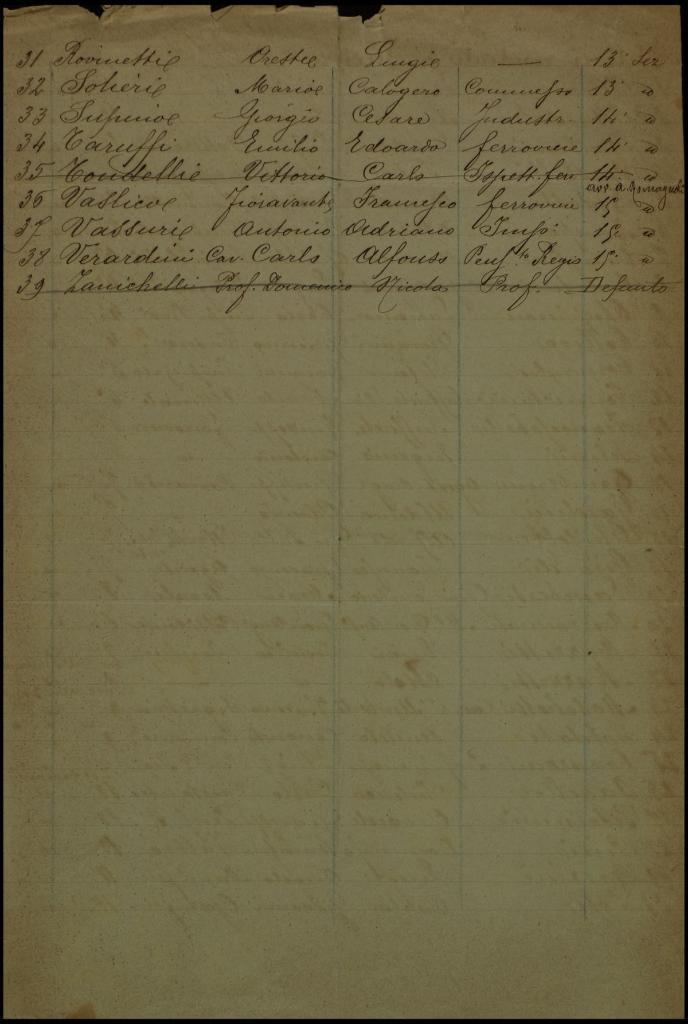 31 Rovinetti Oreste Luigi — 13° Ser
32 Solieri Mario Calogero Commesso 13° "
33 Supino Giorgio Cesare Industr. 14° "
34 Taruffi Emilio Edoardo ferroviere 14° "
35 Tondelli Vittorio Carlo Ispett. ferr 14° "
36 Vaslico Fioravante Francesco ferrovier 15° "
37 Vassuri Antonio Adriano Imp° 15° "
38 Verardini Cav. Carlo Alfonso Pens.to Regio 15° "
39 Zanichelli Prof. Domenico Nicola Prof. Defunto